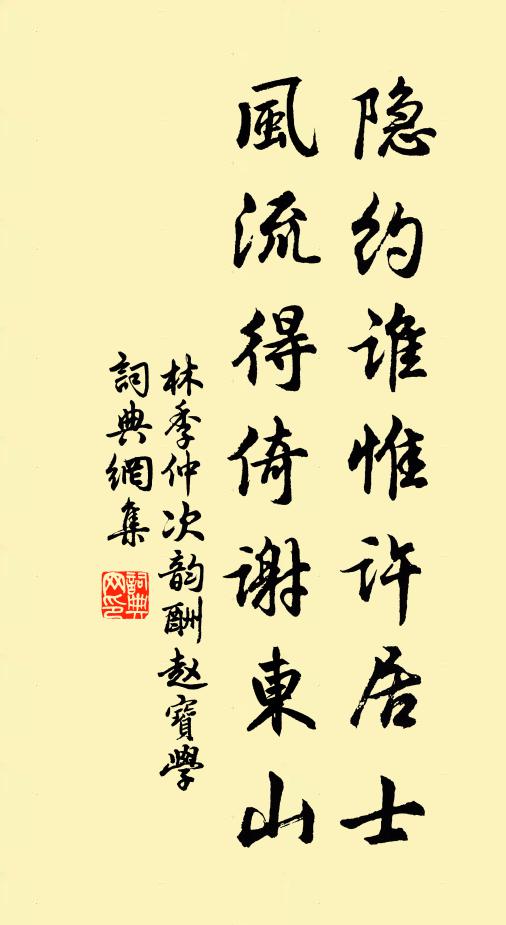 隐约谁惟许居士
風流得倚謝東山
林季仲次韵酬赵寶學
詞典網集
詞典
网印